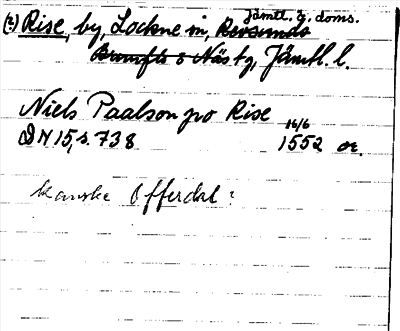 (?) Rise, by, Lockne sn, Revsunds Jämtl. ö. doms.
Brunflo o Näs tg, Jämtl. l.
Niels Paalson po Rise
DN 15, s. 738 16/6 1552 or.
Kanske Offerdal?